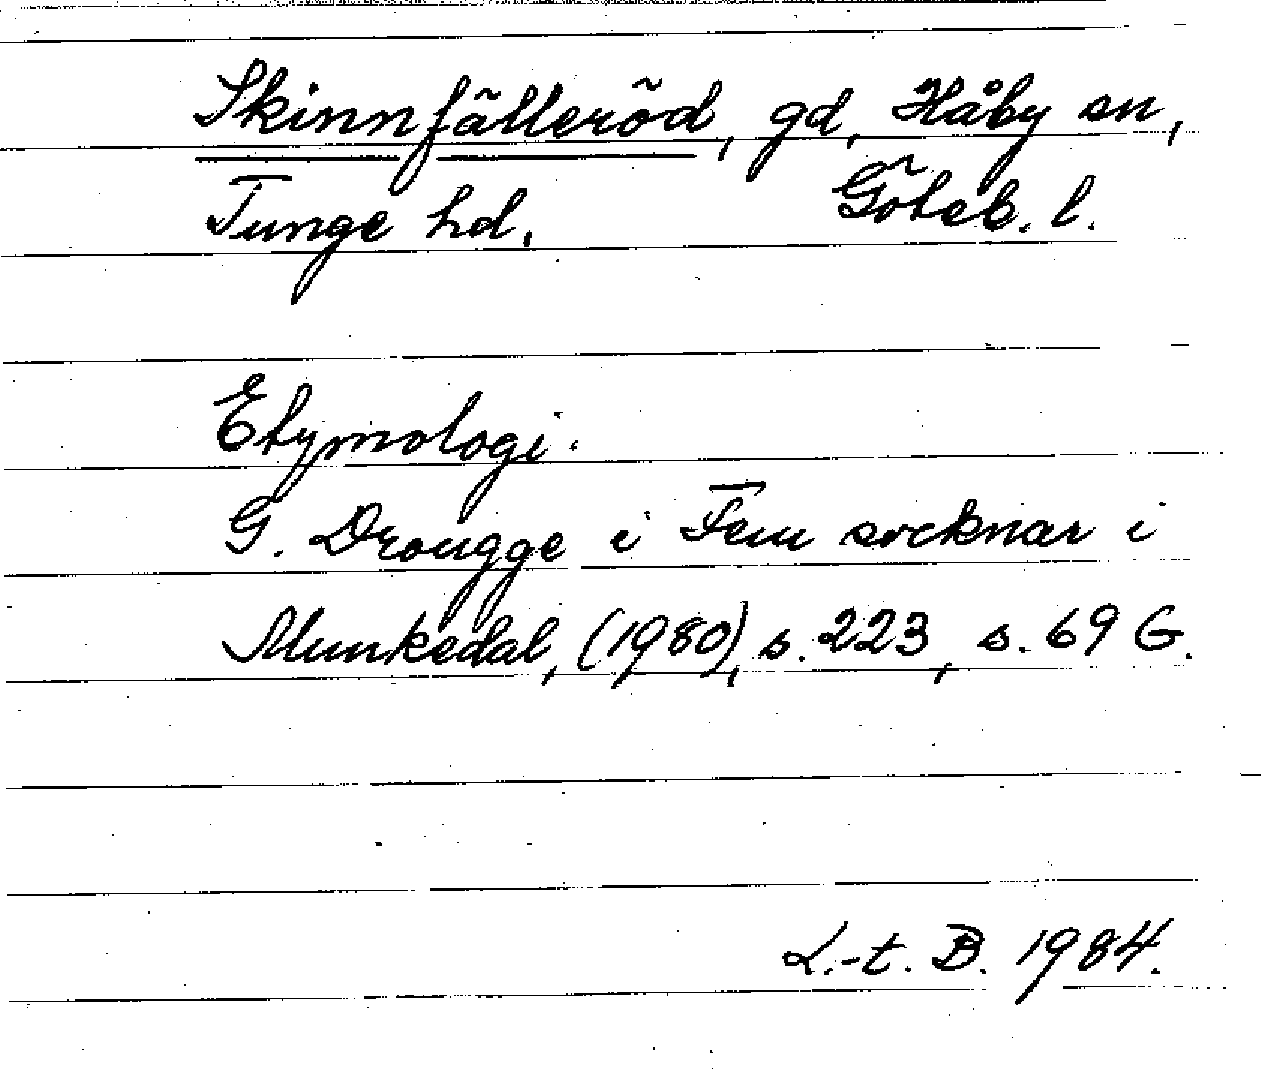 Skinnfälleröd, gd, Håby sn,
Tunge hd. Göteb. l.
Etymologi.
G. Drougge i Fem socknar i
Munkedal, (1980), s. 223, s. 69 G.
L.-t. B. 1984.